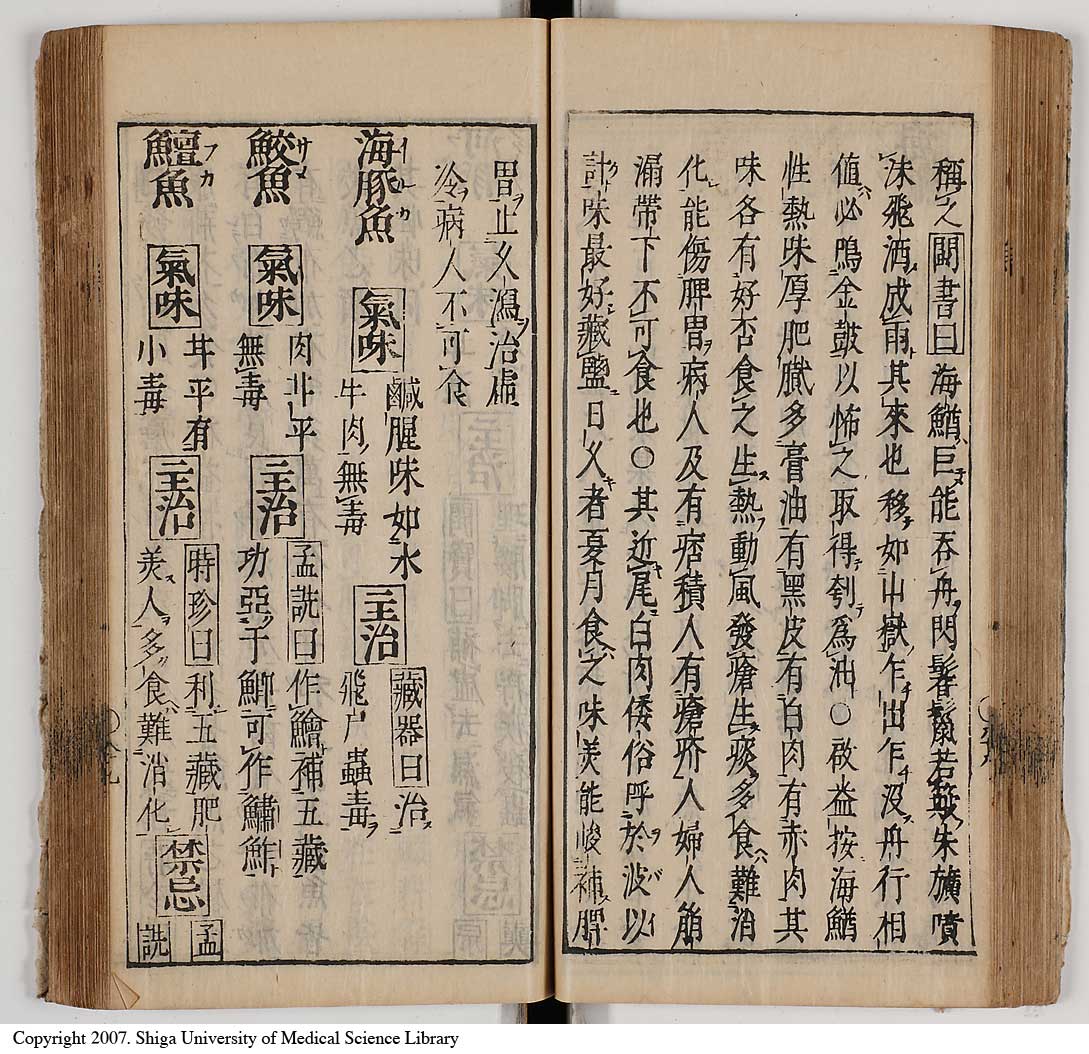 稱之閩書曰海鰌巨能吞舟閃鬐鬣若 朱旗噴
沫飛洒成雨其來也移如山嶽乍出乍没舟行相
値必鳴金鼓以怖之取得刳爲油○啟益按海鰌
性熱味厚肥膩多膏油有黑皮有白肉有赤肉其
味各有好否食之生熱動風發瘡生痰多食難消
化能傷脾胃病人及有痞積人有瘡疥人婦人崩
漏帶下不可食也○其近尾白肉倭俗呼於波以
計味最好藏鹽日久者夏月食之味美能峻補脾
胃止久瀉治虛
冷病人不可食
海豚魚 イルカ 氣味 鹹腥味如水
牛肉無毒 主治 藏器曰治
飛尸蟲毒
鮫魚 サメ 氣味 肉甘平
無毒 主治 孟詵曰作鱠補五藏
功亞于鯽可作鱐鮓
鱣魚 フカ 氣味 甘平有
小毒 主治 時珍曰利五藏肥
美人多食難消化 禁忌 孟
詵